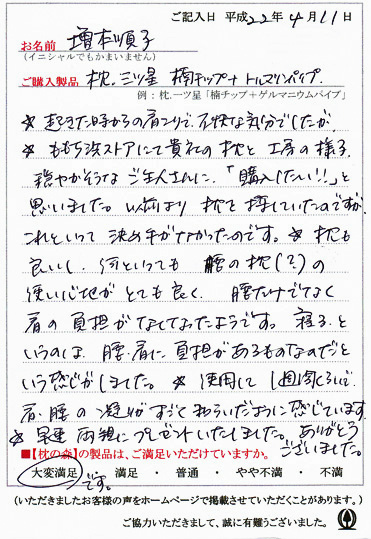 ご記入日 平成22年4月11日
お名前 増本順子
(イニシャルでもかまいません)
ご購入製品 枕.三ツ星 楠チップ+トルマリンパイプ.
例:枕.一ツ星「楠チップ+ゲルマニウムパイプ」
* 起きた時からの肩こりで、不快な気分でしたが
* ももち浜ストアにて貴社の枕と工房の様子.
穏やかそうなご主人さんに、「購入したい!!」と
思いました。以前より枕を探していたのですが、
これといって決め手がなかったのです。* 枕も
良いし、何といっても腰の枕(?)の
使い心地がとても良く、腰だけでなく
肩の負担がなくなったようです。寝る.と
いうのは、腰、肩に負担があるものなのだと
いう感じがしました。* 使用して1週間くらいで、
肩・腰の凝りがすごくやわらいだように感じています.
* 早速両親にプレゼントいたしました。ありがとう
ございました。
■【枕の森】の製品は、ご満足いただけていますか。
大変満足 ・ 満足 ・ 普通 ・ やや不満 ・ 不満
です。
(いただきましたお客様の声をホームページで掲載させていただくことがあります。)
ご協力いただきまして、誠に有難うございました。